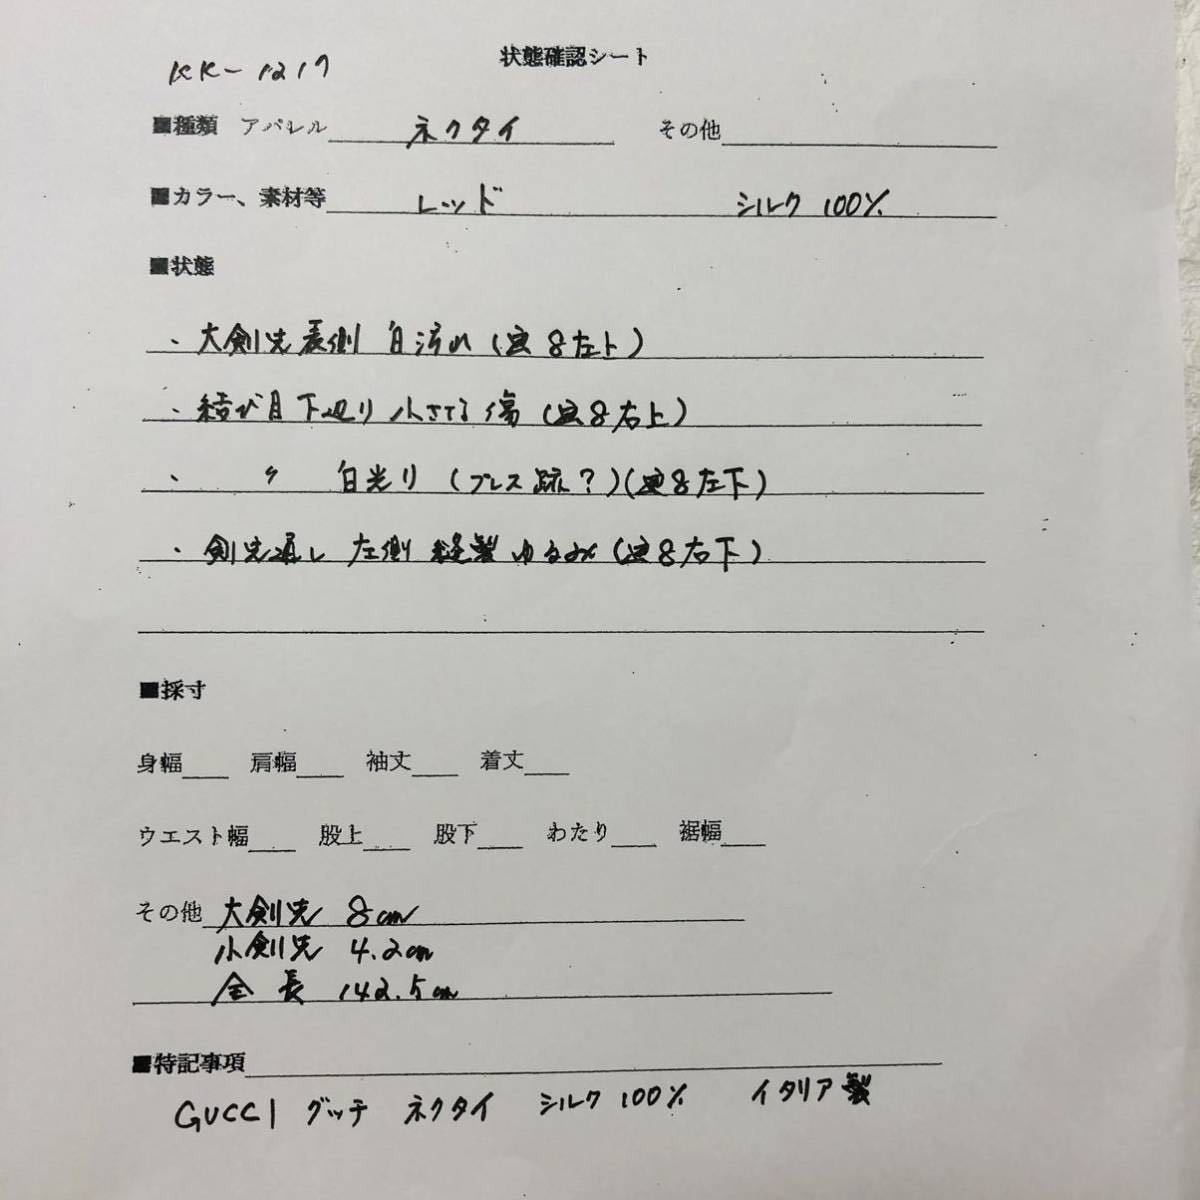 状態確認シート
KK-1217
■種類 アパレル ネクタイ その他
■カラー、素材等 レッド シルク 100%
■状態
・大剣先表側 白汚れ(画8左上)
・結び目下辺り 小さな傷(画8右上)
・ 〃 白光り(プレス跡?)(画8左下)
・剣先通し 左側 縫製ゆるみ(画8右下)
■採寸
身幅 肩幅 袖丈 着丈
ウエスト幅 股上 股下 わたり 裾幅
その他 大剣先 8cm
小剣先 4.2cm
全長 142.5cm
■特記事項
GUCCI グッチ ネクタイ シルク 100% イタリア製